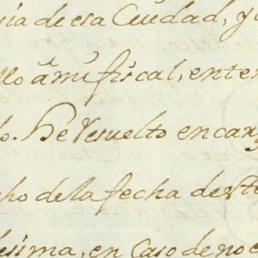 sia de esa Ciudad, y
llo a mi fiscal, ente
lo. He resuelto encarg
cho de la fecha de
sima, en Caso de no e